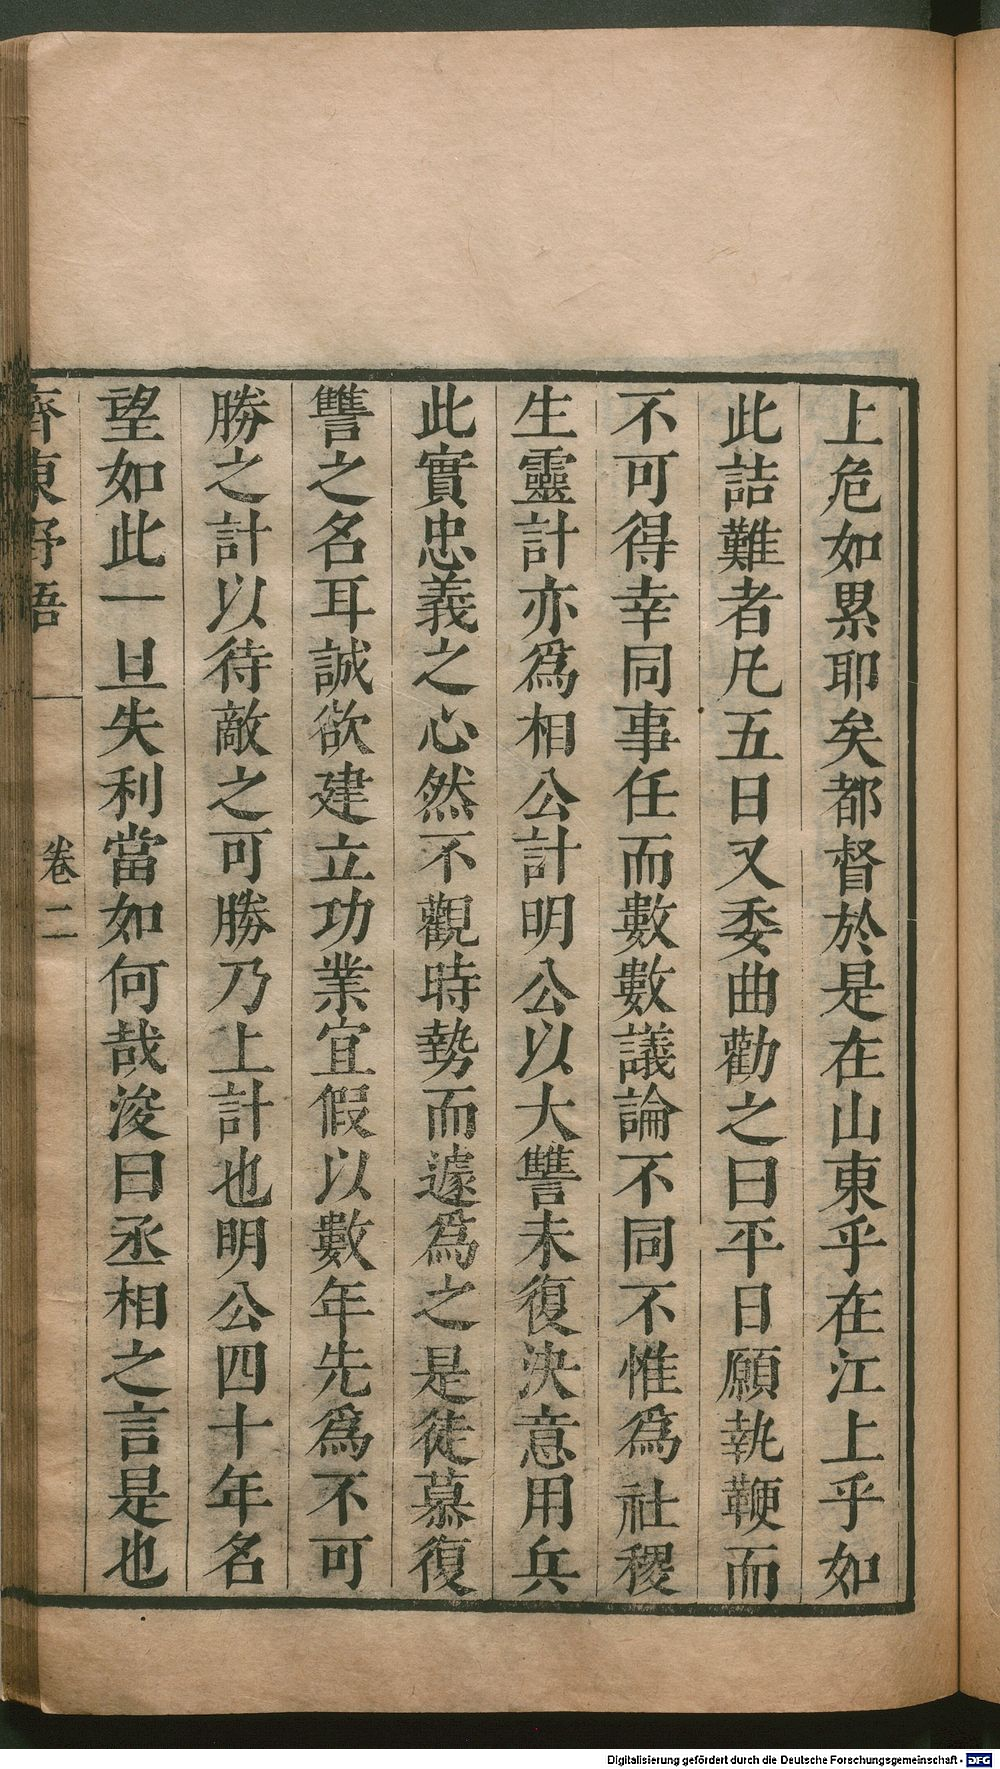 上危如累耶矣都督於是在山東乎在江上乎如
此詰難者凡五日又委曲勸之曰平日願執鞭而
不可得幸同事任而數數議論不同不惟爲社稷
生靈計亦爲相公計明公以大讐未復決意用兵
此實忠義之心然不觀時勢而遽爲之是徒慕復
讐之名耳誠欲建立功業宜假以數年先爲不可
勝之計以待敵之可勝乃上計也明公四十年名
望如此一旦失利當如何哉浚曰丞相之言是也
齊東野語 卷二
Digitalisierung gefördert durch die Deutsche Forschungsgemeinschaft - DFG